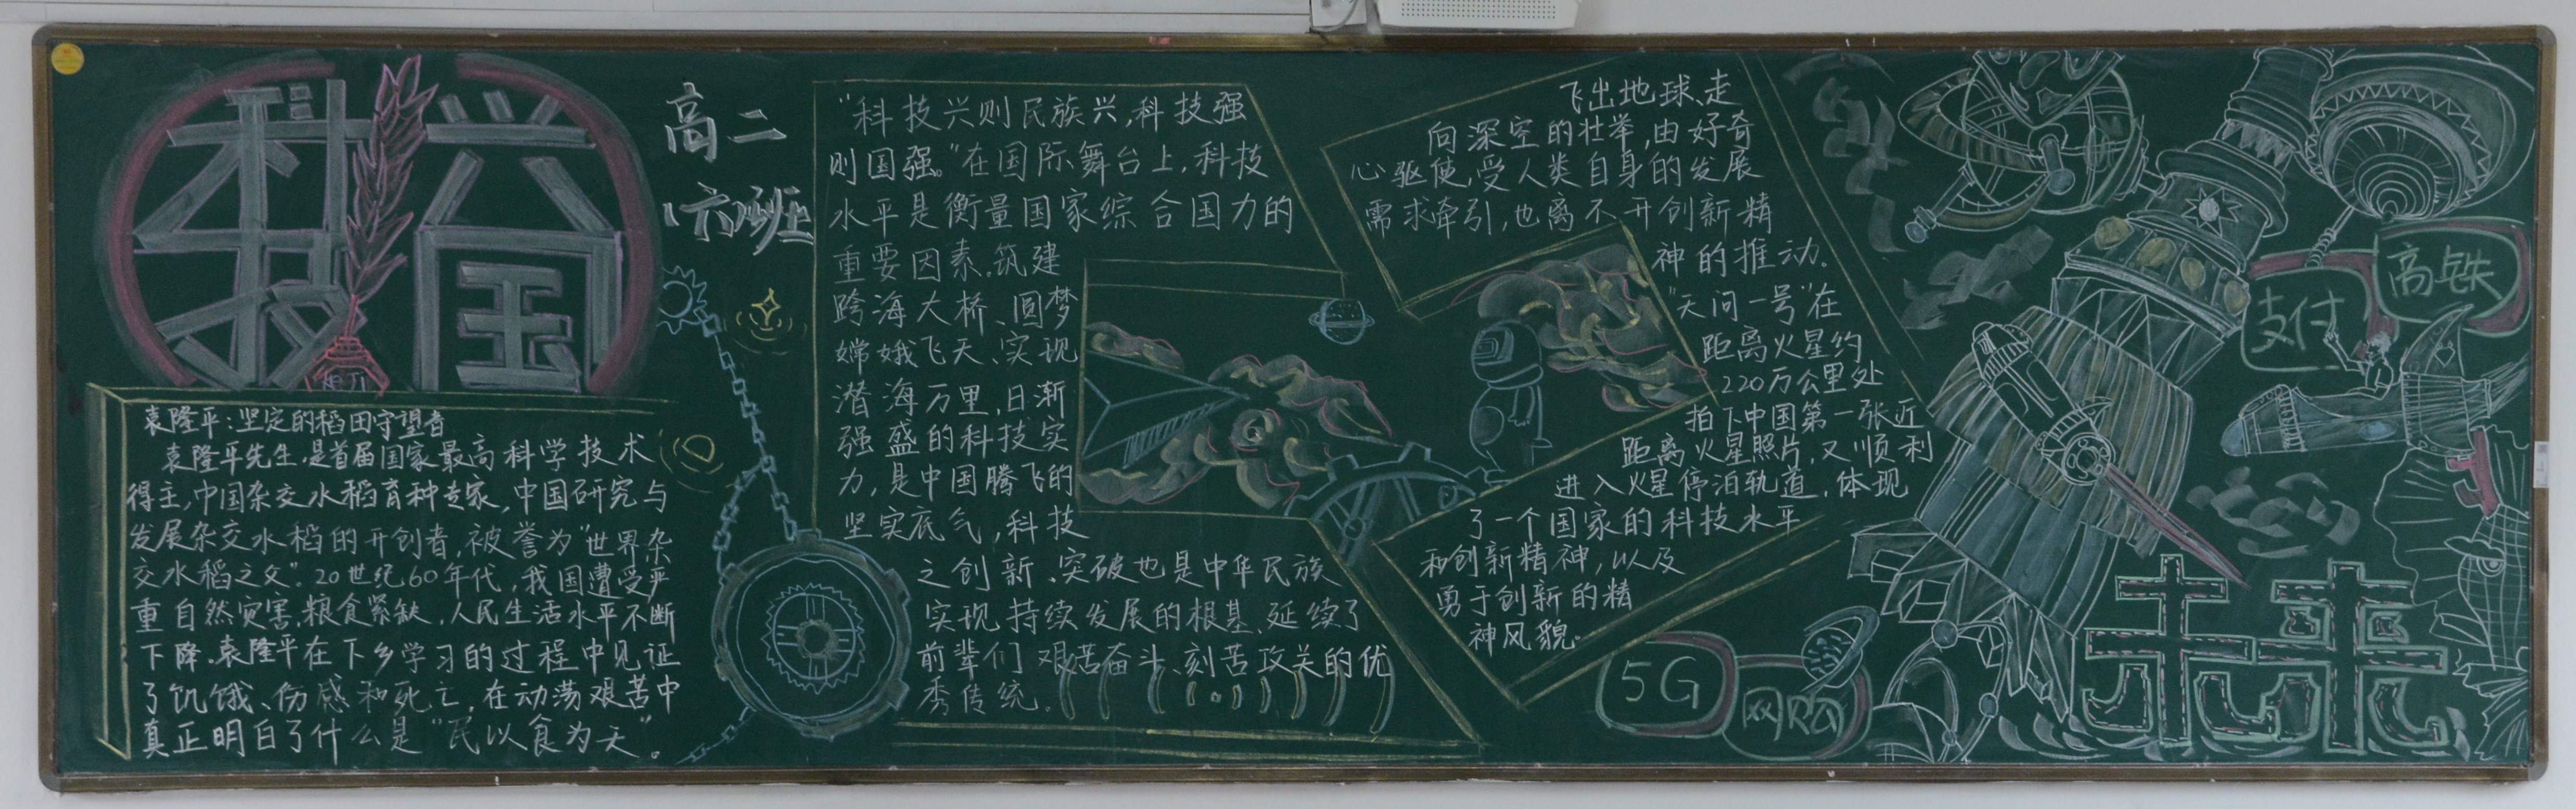 科技
兴国
高二
(六)班
袁隆平:坚定的稻田守望者
袁隆平先生,是首届国家最高科学技术
得主,中国杂交水稻育种专家,中国研究与
发展杂交水稻的开创者,被誉为“世界杂
交水稻之父”。20世纪60年代,我国遭受严
重自然灾害,粮食紧缺,人民生活水平不断
下降.袁隆平在下乡学习的过程中见证
了饥饿、伤感和死亡,在动荡艰苦中
真正明白了什么是“民以食为天”。
“科技兴则民族兴,科技强
则国强。”在国际舞台上,科技
水平是衡量国家综合国力的
重要因素.筑建
跨海大桥、圆梦
嫦娥飞天、实现
潜海万里,日渐
强盛的科技实
力,是中国腾飞的
坚实底气,科技
之创新、突破也是中华民族
实现持续发展的根基、延续了
前辈们艰苦奋斗、刻苦攻关的优
秀传统.
飞出地球、走
向深空的壮举,由好奇
心驱使,受人类自身的发展
需求牵引,也离不开创新精
神的推动.
“天问一号”在
距离火星约
220万公里处
拍下中国第一张近
距离火星照片,又顺利
进入火星停泊轨道,体现
了一个国家的科技水平
和创新精神,以及
勇于创新的精
神风貌.
高铁
支付
5G
网购
未来